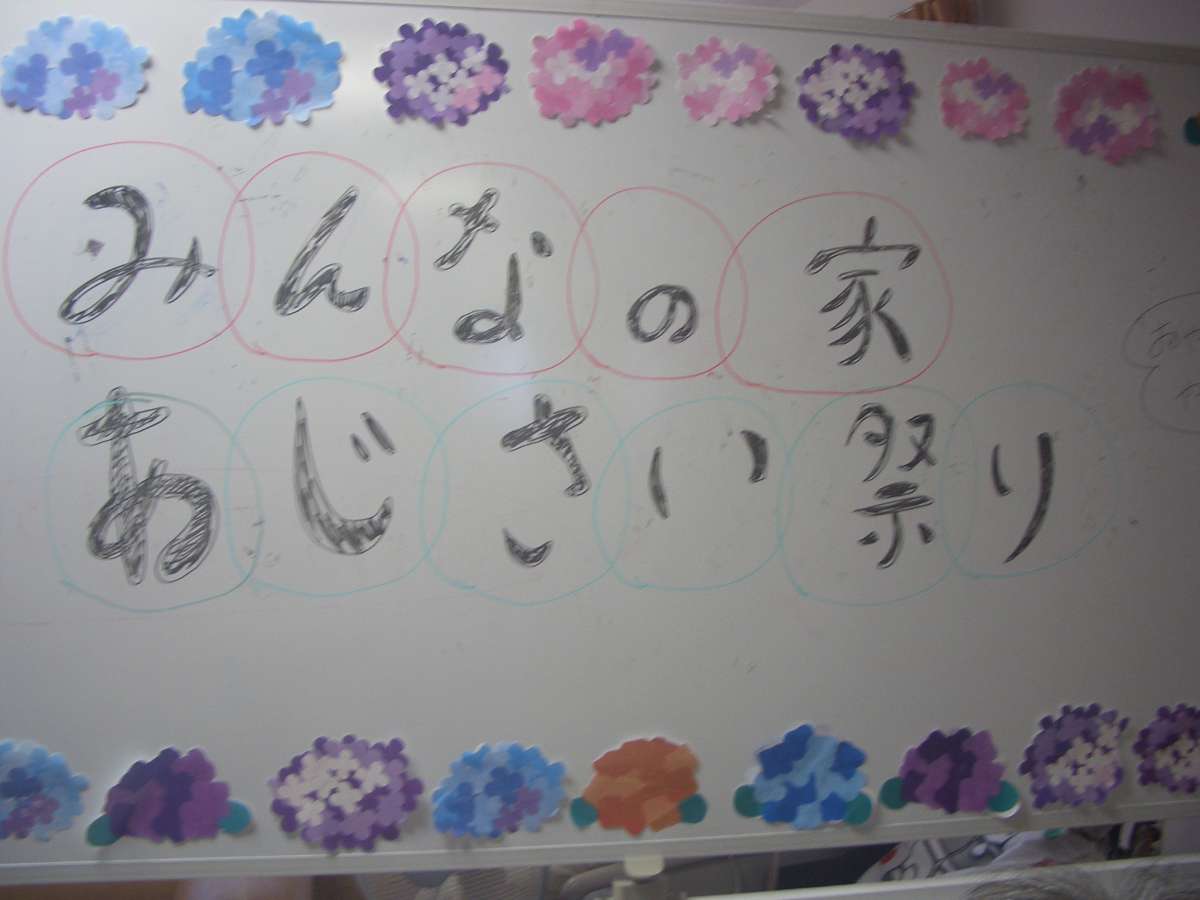 みんなの家
あじさい祭り